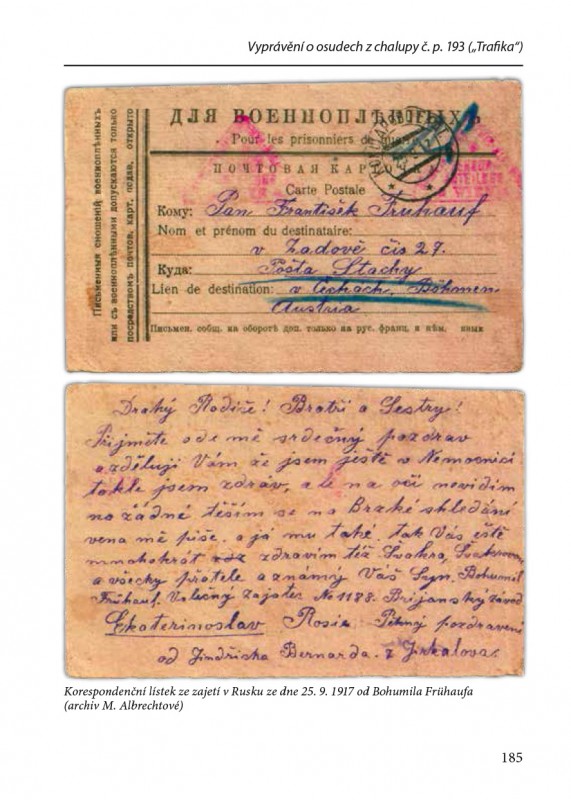 Vyprávění o osudech z chalupy č. p. 193 („Trafika“)
ДЛЯ ВОЕННОПЛѢННЫХЪ
Pour les prisonniers de guerre
ПОЧТОВАЯ КАРТОЧКА
Carte Postale
Кому: Pan František Frühauf
Nom et prénom du destinataire:
v Zadově čis 27.
Куда: Pošta Stachy
Lien de destination: v Čechach. Böhmen
Austria
Письмен. сообщ. на оборотѣ доп. только на рус. франц. и нѣм.
Письменныя сношенія военноплѣнныхъ
или съ военноплѣнными допускаются только
посредствомъ почтов. карт. подав. открыто
Drahý Rodiče! Bratři a Sestry!
Přijměte ode mě srdečný pozdrav
a zděluji Vám že jsem ještě v Nemocnici
takle jsem zdráv, ale na oči nevidím
na žádné těším se na Brzké shledání
vena mě píše. a já mu také. tak Vás ještě
mnohokrát zdravim též Švakra,
a všecky přátele a známý Váš Syn. Bohumil
Frühauf. Valečný zajatec № 1188. Brijanský závod
Ekaterinoslav Rosie Pěkný pozdraveni
od Jindřicha Bernarda. z Jirkalova.
Korespondenční lístek ze zajetí v Rusku ze dne 25. 9. 1917 od Bohumila Frühaufa
(archiv M. Albrechtové)
185